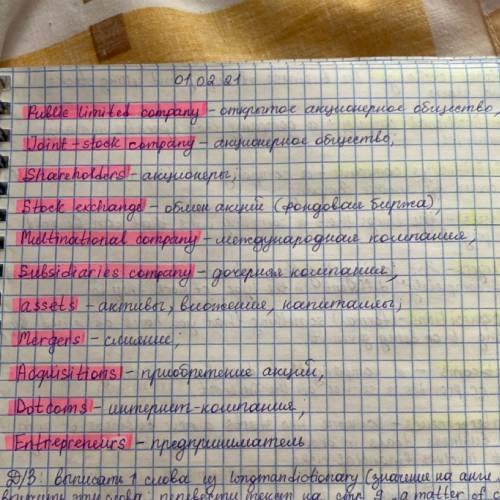 01.02.21
Public limited company – открытое акционерное общество,
Joint-stock company – акционерное общество;
Shareholders – акционеры;
Stock exchange – обмен акций (фондовая биржа),
Multinational company – международная компания;
Subsidiaries company – дочерняя компания;
assets – активы, вложения, капиталлы;
Mergers – слияние;
Acquisitions – приобретение акций,
Dotcoms – интернет-компания;
Entrepreneurs – предприниматель
Д/З: выписать 1 слова из longmandictionary (значение на англ
эти слова; перевести текст на стр 9 „a matter of